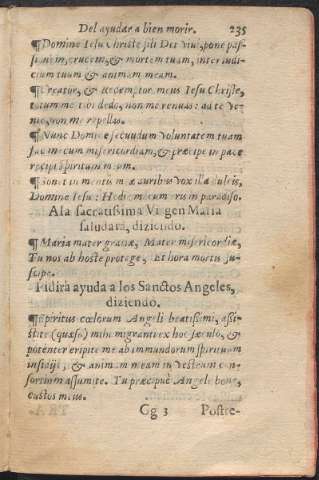 Del ayudar a bien morir. 235
¶ Domine Iesu Christe fili Dei viui, pone pas-
sionem, crucem, & mortem tuam, inter iudi-
cium tuum & animam meam.
¶ Creator, & Redemptor meus Iesu Christe,
totum me tibi dedo, non me renuas: ad te ve-
nio, non me repellas.
¶ Nunc Domine secundum voluntatem tuam
fac mecum misericordiam, & præcipe in pace
recipi spiritum meum.
¶ Sonet in mentis meæ auribus vox illa dulcis,
Domine Iesu: Hodie mecum eris in paradiso.
A la sacratissima Virgen Maria
saludara, diziendo.
¶ Maria mater gratiæ, Mater misericordiæ,
Tu nos ab hoste protege, Et hora mortis su-
scipe.
Pidira ayuda a los Sanctos Angeles,
diziendo.
¶ Spiritus cœlorum Angeli beatissimi, assi-
stite (quæso) mihi migranti ex hoc sæculo, &
potenter eripite me ab immundorum spirituum
insidijs, & animam meam in vestrum con-
sortium assumite. Tu præcipuè Angele bone,
custos meus.
Gg 3 Postre-